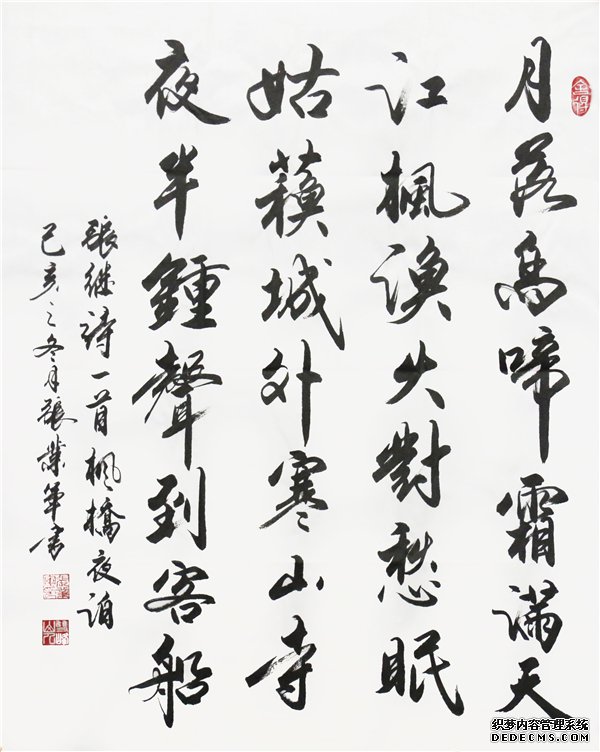 月落烏啼霜滿天
江楓漁火對愁眠
姑蘓城外寒山寺
夜半鍾聲到客船
張继詩一首楓橋夜泊
己亥之冬月張業軍書
织梦内容管理系统
DEDECMS.COM